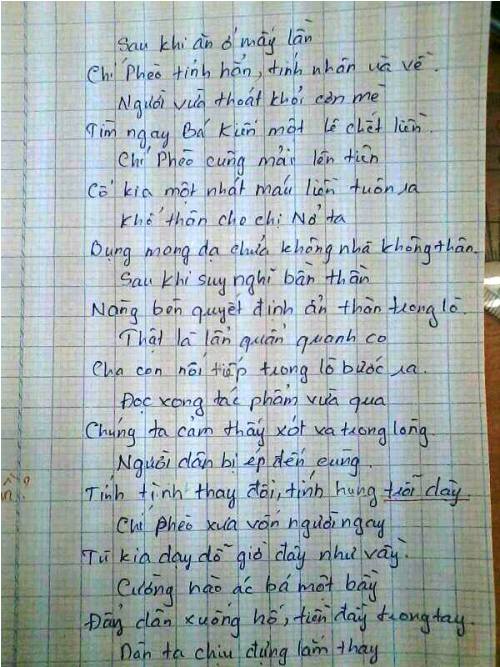 Sau khi ăn ở mấy lần
Chí Phèo tỉnh hẳn, tính nhân và về.
Người vừa thoát khỏi cơn mê
Tìm ngay Bá Kiến một lê chết liền.
Chí Phèo cũng mải lên tiên
Cổ kia một nhát máu liền tuôn ra
Khổ thân cho chị Nở ta
Bụng mang dạ chửa không nhà không thân.
Sau khi suy nghĩ bần thần
Nàng bèn quyết định ẩn thân trong lò.
Thật là lẩn quẩn quanh co
Cha con nối tiếp trong lò bước ra.
Đọc xong tác phẩm vừa qua
Chúng ta cảm thấy xót xa trong lòng.
Người dân bị ép đến cùng.
Tính tình thay đổi, tính hung trỗi dậy
Chí Phèo xưa vốn người ngay
Tù kia day dỗ giờ đây như vầy.
Cường hào ác bá một bầy
Đẩy dân xuống hố, tiền đầy trong tay.
Dân ta chịu đựng lắm thay